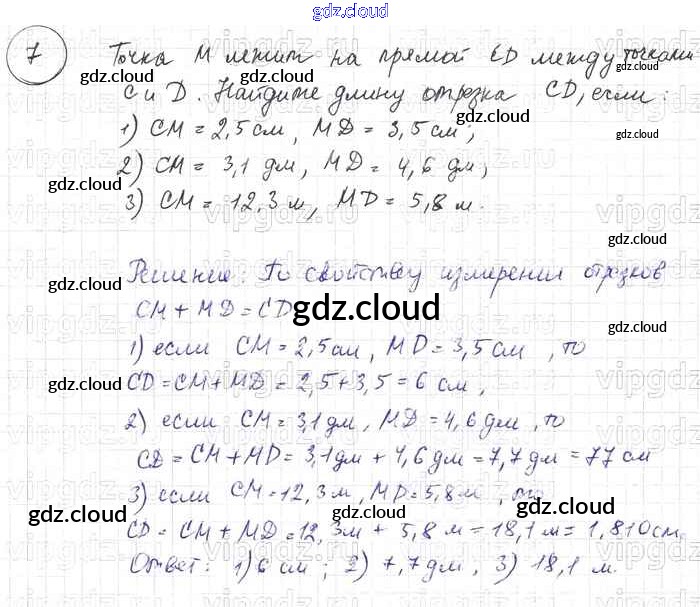 gdz.cloud
7 Точка M лежит на прямой CD между точками
C и D. Найдите длину отрезка CD, если:
1) CM = 2,5 см, MD = 3,5 см;
2) CM = 3,1 дм, MD = 4,6 дм;
3) CM = 12,3 м, MD = 5,8 м.
Решение: По свойству измерения отрезков
CM + MD = CD
gdz.cloud
1) если CM = 2,5 см, MD = 3,5 см, то
CD = CM + MD = 2,5 + 3,5 = 6 см,
2) если CM = 3,1 дм, MD = 4,6 дм, то
CD = CM + MD = 3,1 дм + 4,6 дм = 7,7 дм = 77 см
3) если CM = 12,3 м, MD = 5,8 м, то
CD = CM + MD = 12,3 м + 5,8 м = 18,1 м = 1,810 см.
Ответ: 1) 6 см; 2) 7,7 дм, 3) 18,1 м.